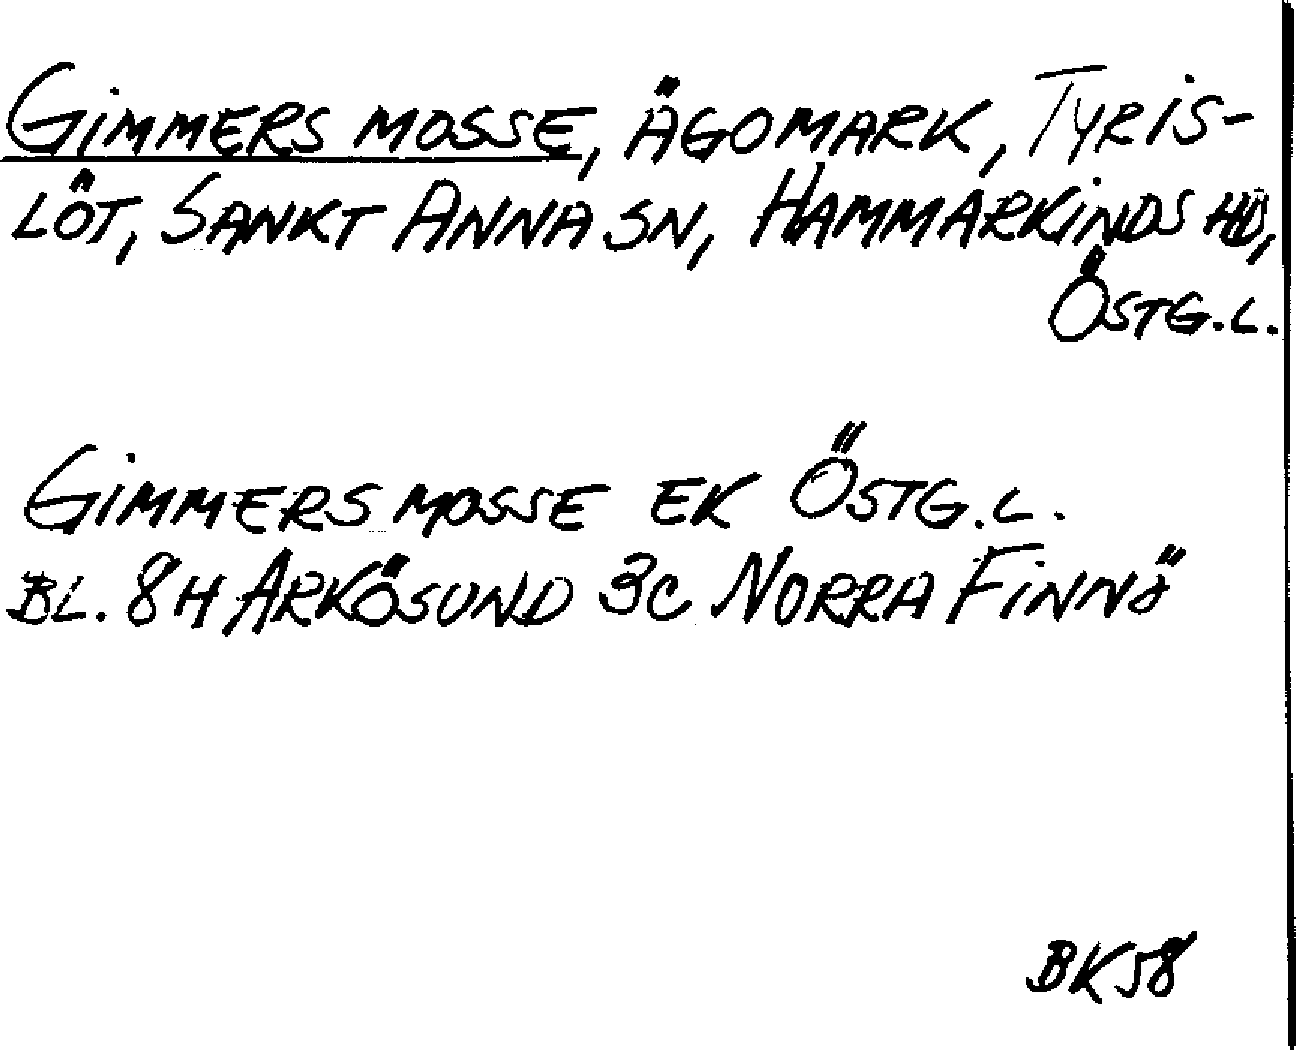 GIMMERS MOSSE, ÄGOMARK, TYRIS-
LÖT, SANKT ANNA SN, HAMMARKINDS HD,
ÖSTG.L.
GIMMERS MOSSE EK ÖSTG.L.
BL. 8H ARKÖSUND 3C NORRA FINNÖ
BK58